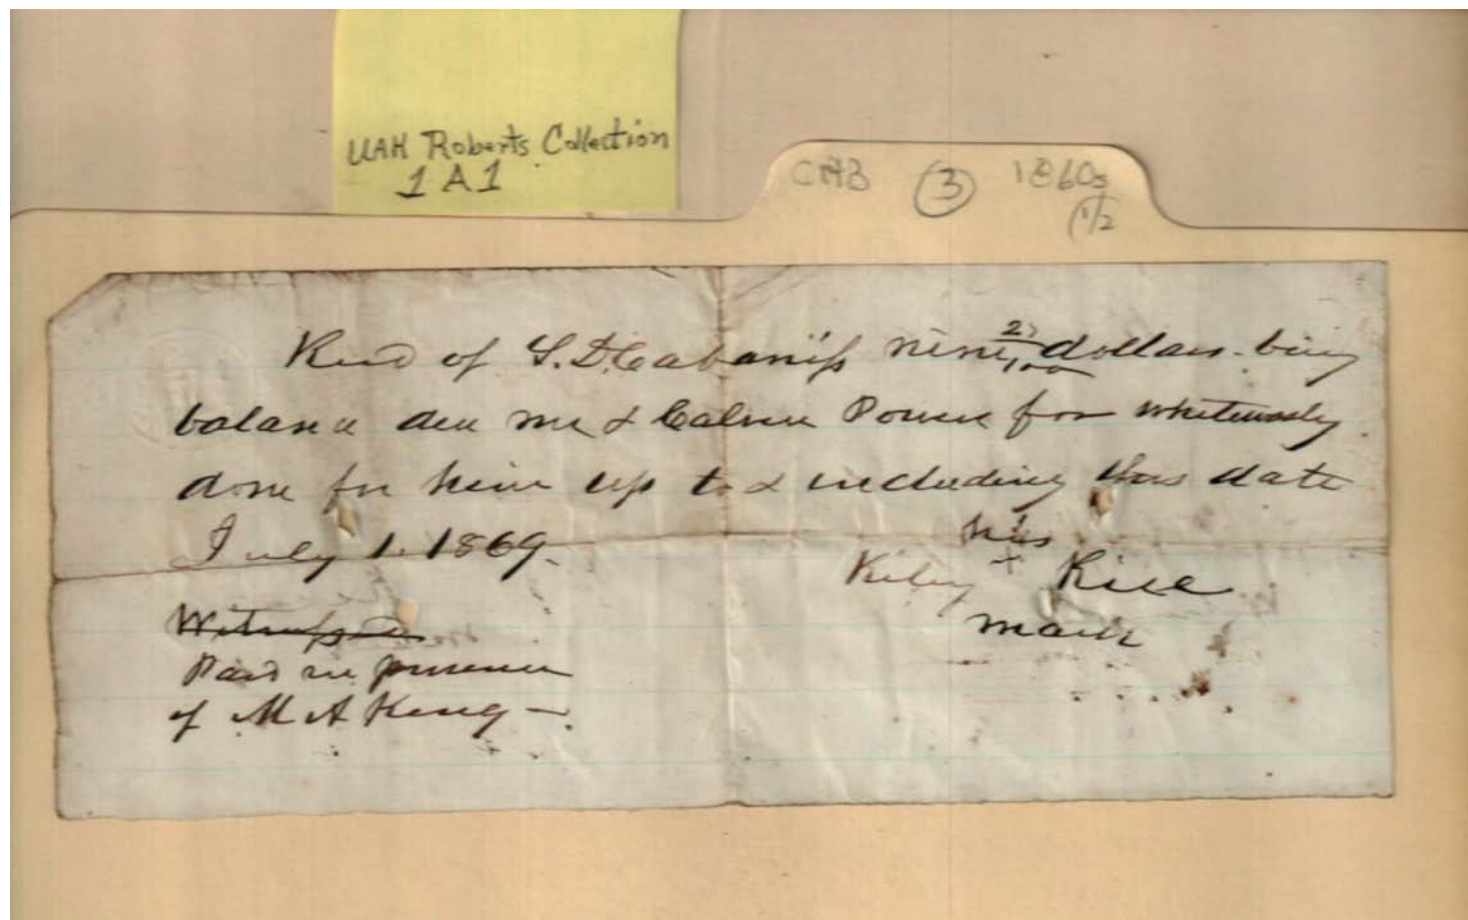 UAH Roberts Collection
1A1
CAB 3 1860s
1/2
Recd of S. D. Cabaniss nine 2/100 dollars being
balance due me & Calvin Power for whitewashg
done for him up to & including this date
July 1. 1869.
his
+ Rice
mark
Witness
Paid in presence
of M A King —